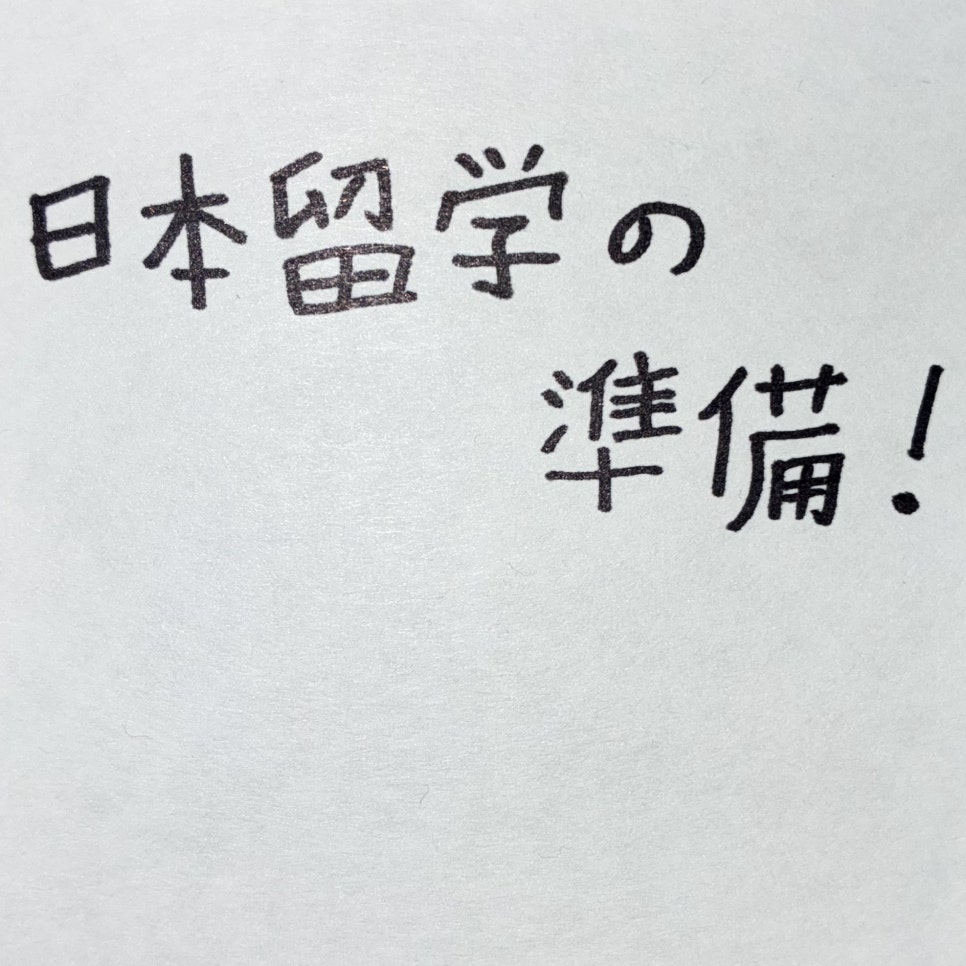 日本留学の
準備!